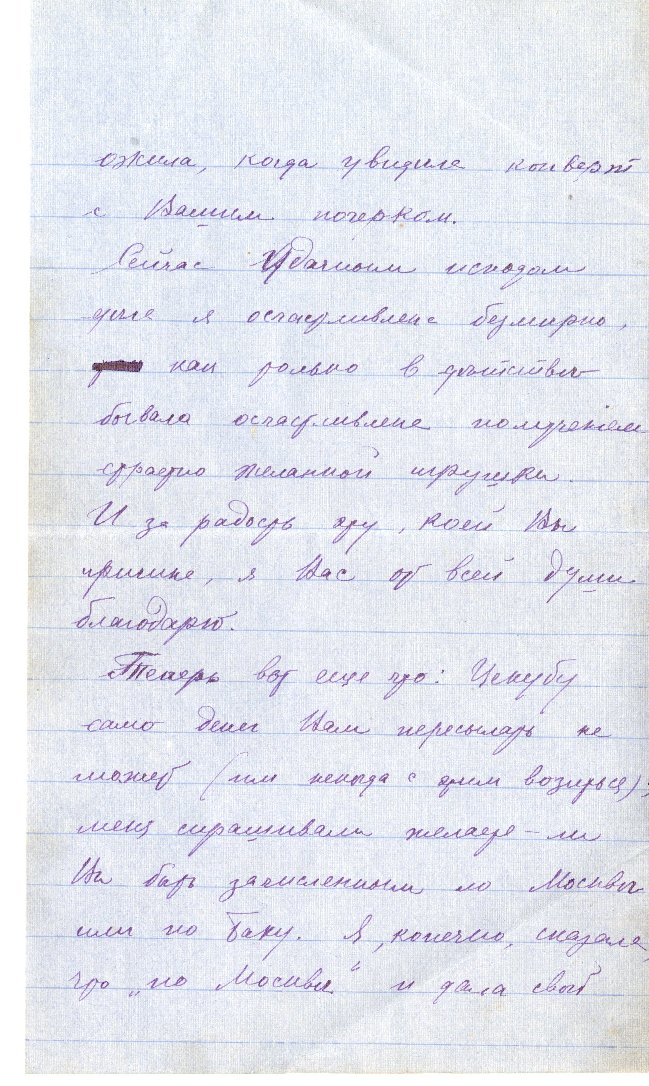 ожила, когда увидела конверт
с Вашим почерком.
Сейчас Удачным исходом
дела я осчастливлена безмерно,
как только в детстве
бывала осчастливлена получением
страстно желанной игрушки.
И за радость эту, коей Вы
причина, я Вас от всей души
благодарю.
Теперь вот еще что: Цекубу
само денег Вам пересылать не
может (им некогда с этим возиться);
меня спрашивали желаете-ли
Вы быть зачисленным по Москвы
или по Баку. Я, конечно, сказала,
что „по Москвы“ и дала свой